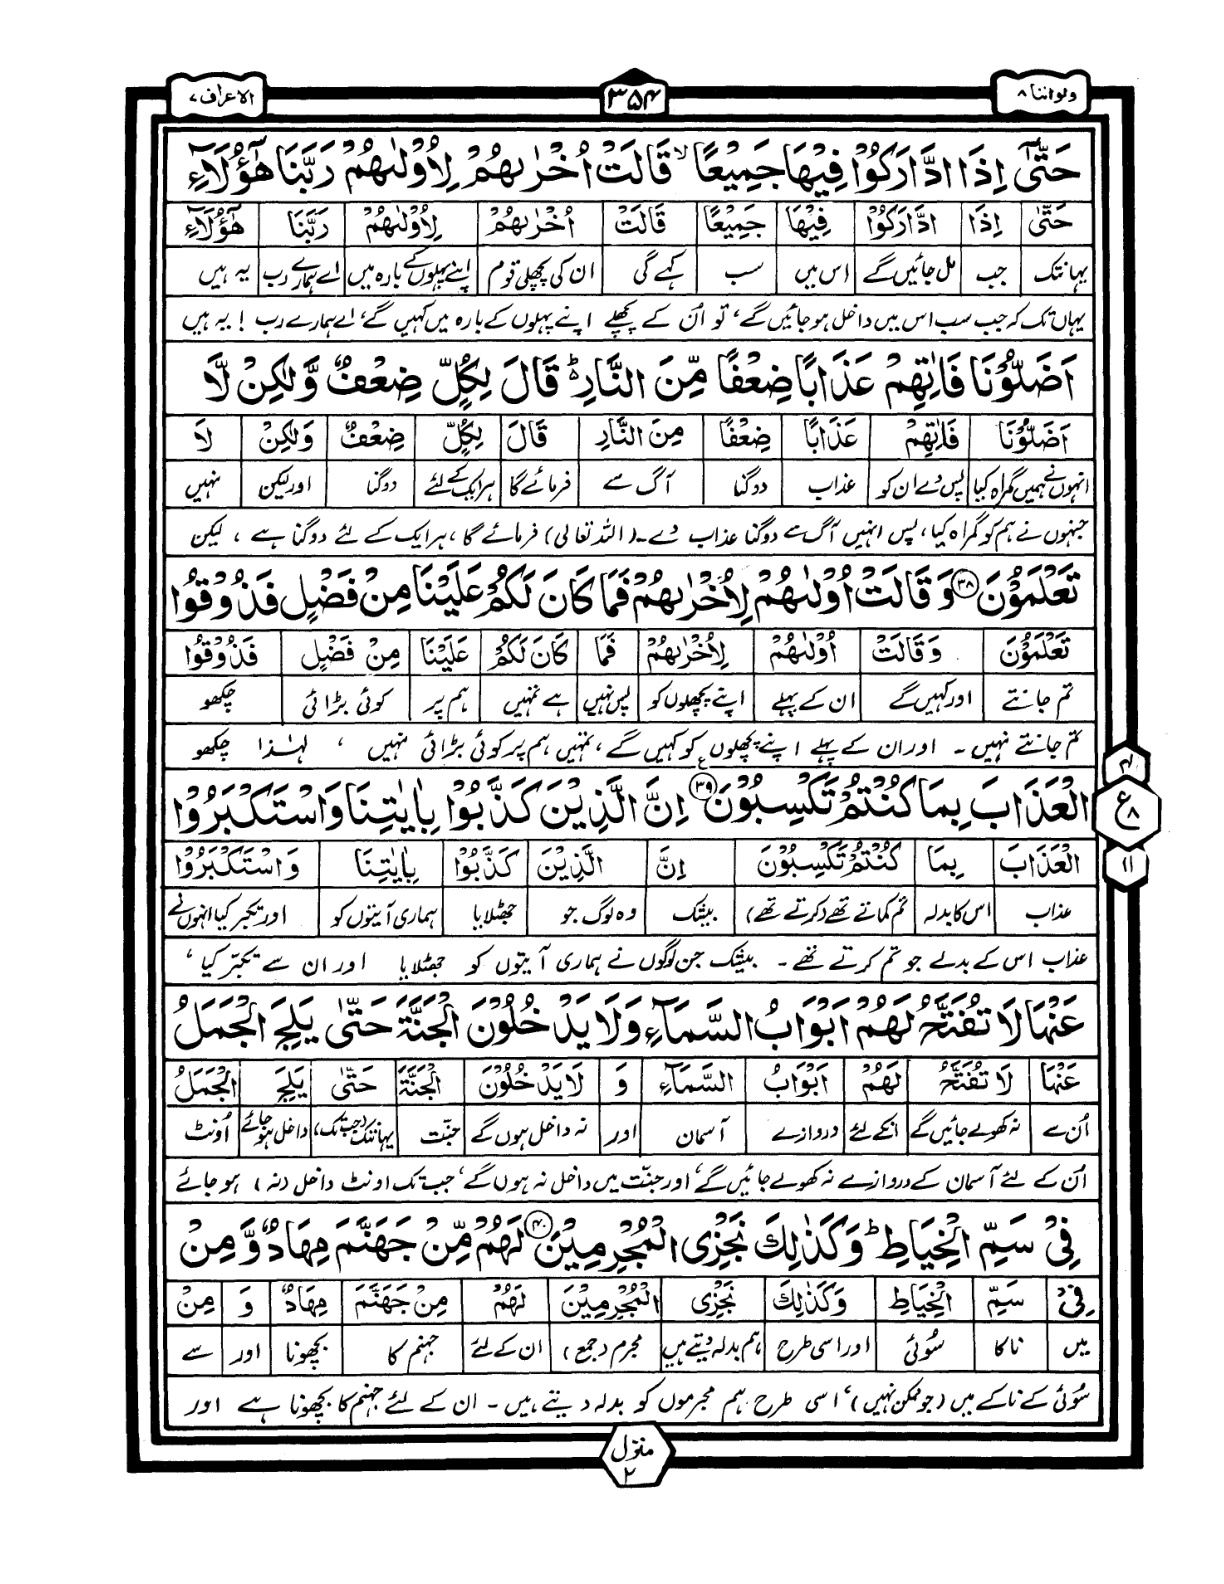 ولواننا ۸
۳۵۴
الاعراف ۷
حَتّٰۤى اِذَا ادَّارَكُوْا فِيْهَا جَمِيْعًا ۙ قَالَتْ اُخْرٰىهُمْ لِاُوْلٰىهُمْ رَبَّنَا هٰۤؤُلَآءِ
حَتّٰى اِذَا ادَّارَكُوْا فِيْهَا جَمِيْعًا قَالَتْ اُخْرٰىهُمْ لِاُوْلٰىهُمْ رَبَّنَا هٰۤؤُلَآءِ
یہانتک جب مل جائیں گے اس میں سب کہے گی ان کی پچھلی قوم اپنے پہلوں کے بارہ میں اے ہمارے رب یہ ہیں
یہاں تک کہ جب سب اس میں داخل ہو جائیں گے، تو اُن کے پچھلے اپنے پہلوں کے بارہ میں کہیں گے، اے ہمارے رب ! یہ ہیں
اَضَلُّوْنَا فَاٰتِهِمْ عَذَابًا ضِعْفًا مِّنَ النَّارِ ؕ قَالَ لِكُلٍّ ضِعْفٌ وَّلٰكِنْ لَّا
اَضَلُّوْنَا فَاٰتِهِمْ عَذَابًا ضِعْفًا مِنَ النَّارِ قَالَ لِكُلٍّ ضِعْفٌ وَلٰكِنْ لَا
انہوں نے ہمیں گمراہ کیا پس دے ان کو عذاب دوگنا آگ سے فرمائے گا ہر ایک کے لئے دوگنا اور لیکن نہیں
جنہوں نے ہم کو گمراہ کیا، پس انہیں آگ سے دوگنا عذاب دے۔ (اللہ تعالی) فرمائے گا، ہر ایک کے لئے دوگنا ہے ، لیکن
تَعْلَمُوْنَ ۳۸ وَقَالَتْ اُوْلٰىهُمْ لِاُخْرٰىهُمْ فَمَا كَانَ لَكُمْ عَلَيْنَا مِنْ فَضْلٍ فَذُوْقُوا
تَعْلَمُوْنَ وَقَالَتْ اُوْلٰىهُمْ لِاُخْرٰىهُمْ فَمَا كَانَ لَكُمْ عَلَيْنَا مِنْ فَضْلٍ فَذُوْقُوا
تم جانتے اور کہیں گے ان کے پہلے اپنے پچھلوں کو پس نہیں ہے تمہیں ہم پر کوئی بڑائی چکھو
تم جانتے نہیں ۔ اور ان کے پہلے اپنے پچھلوں کو کہیں گے، تمہیں ہم پر کوئی بڑائی نہیں ، لہٰذا چکھو
الْعَذَابَ بِمَا كُنْتُمْ تَكْسِبُوْنَ ۳۹ اِنَّ الَّذِيْنَ كَذَّبُوْا بِاٰيٰتِنَا وَاسْتَكْبَرُوْا
الْعَذَابَ بِمَا كُنْتُمْ تَكْسِبُوْنَ اِنَّ الَّذِيْنَ كَذَّبُوْا بِاٰيٰتِنَا وَاسْتَكْبَرُوْا
عذاب اس کا بدلہ تم کماتے تھے (کرتے تھے) بیشک وہ لوگ جو جھٹلایا ہماری آیتوں کو اور تکبر کیا انہوں نے
عذاب اس کے بدلے جو تم کرتے تھے ۔ بیشک جن لوگوں نے ہماری آیتوں کو جھٹلایا اور ان سے تکبّر کیا ،
ع
۸
۱۱
عَنْهَا لَا تُفَتَّحُ لَهُمْ اَبْوَابُ السَّمَآءِ وَلَا يَدْخُلُوْنَ الْجَنَّةَ حَتّٰى يَلِجَ الْجَمَلُ
عَنْهَا لَا تُفَتَّحُ لَهُمْ اَبْوَابُ السَّمَآءِ وَ لَا يَدْخُلُوْنَ الْجَنَّةَ حَتّٰى يَلِجَ الْجَمَلُ
اُن سے نہ کھولے جائیں گے انکے لئے دروازے آسمان اور نہ داخل ہوں گے جنّت یہانتک (جب تک) داخل ہو جائے اُونٹ
اُن کے لئے آسمان کے دروازے نہ کھولے جائیں گے، اور جنّت میں داخل نہ ہوں گے، جب تک اونٹ داخل (نہ) ہو جائے
فِيْ سَمِّ الْخِيَاطِ ؕ وَكَذٰلِكَ نَجْزِى الْمُجْرِمِيْنَ ۴۰ لَهُمْ مِّنْ جَهَنَّمَ مِهَادٌ وَّمِنْ
فِيْ سَمِّ الْخِيَاطِ وَكَذٰلِكَ نَجْزِى الْمُجْرِمِيْنَ لَهُمْ مِنْ جَهَنَّمَ مِهَادٌ وَ مِنْ
میں ناکا سُوئی اور اسی طرح ہم بدلہ دیتے ہیں مجرم (جمع) ان کے لئے جہنم کا بچھونا اور سے
سُوئی کے ناکے میں (جو ممکن نہیں)، اسی طرح ہم مجرموں کو بدلہ دیتے ہیں ۔ ان کے لئے جہنم کا بچھونا ہے اور
منزل
۲